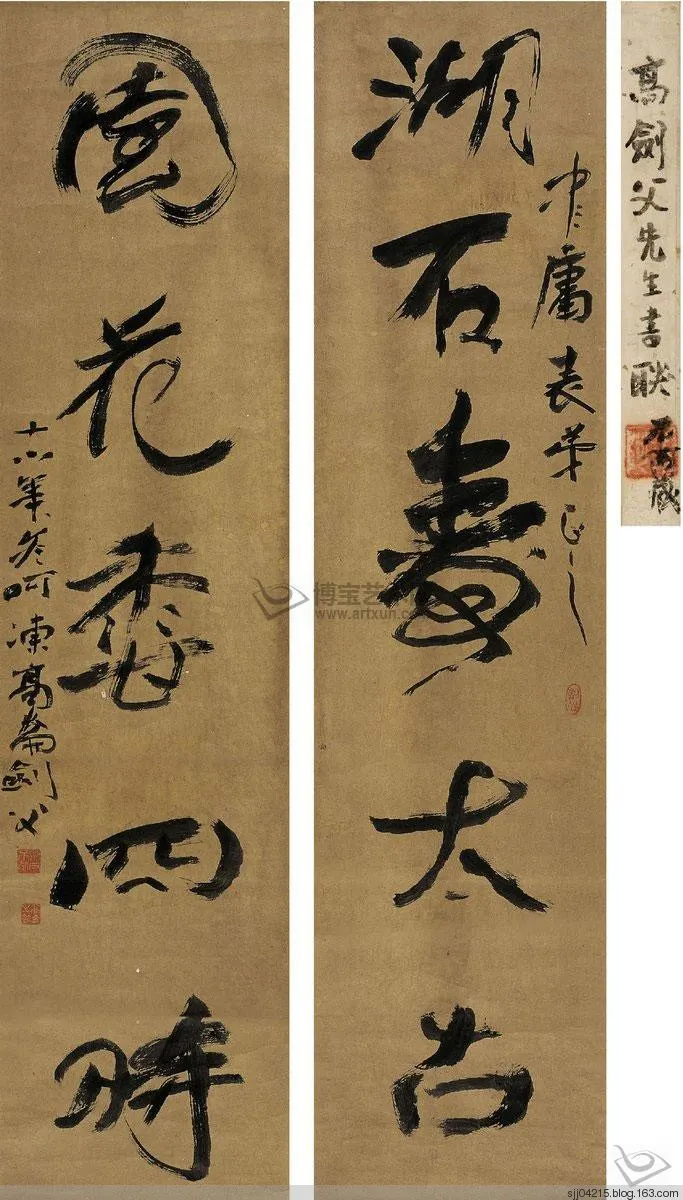 湖石壽太古
中庸表弟正之
園花香四時
十六年冬呵凍高崙劍父
高劍父先生書聯
藏
博宝艺
www.artxun.com
sjj04215.blog.163.com